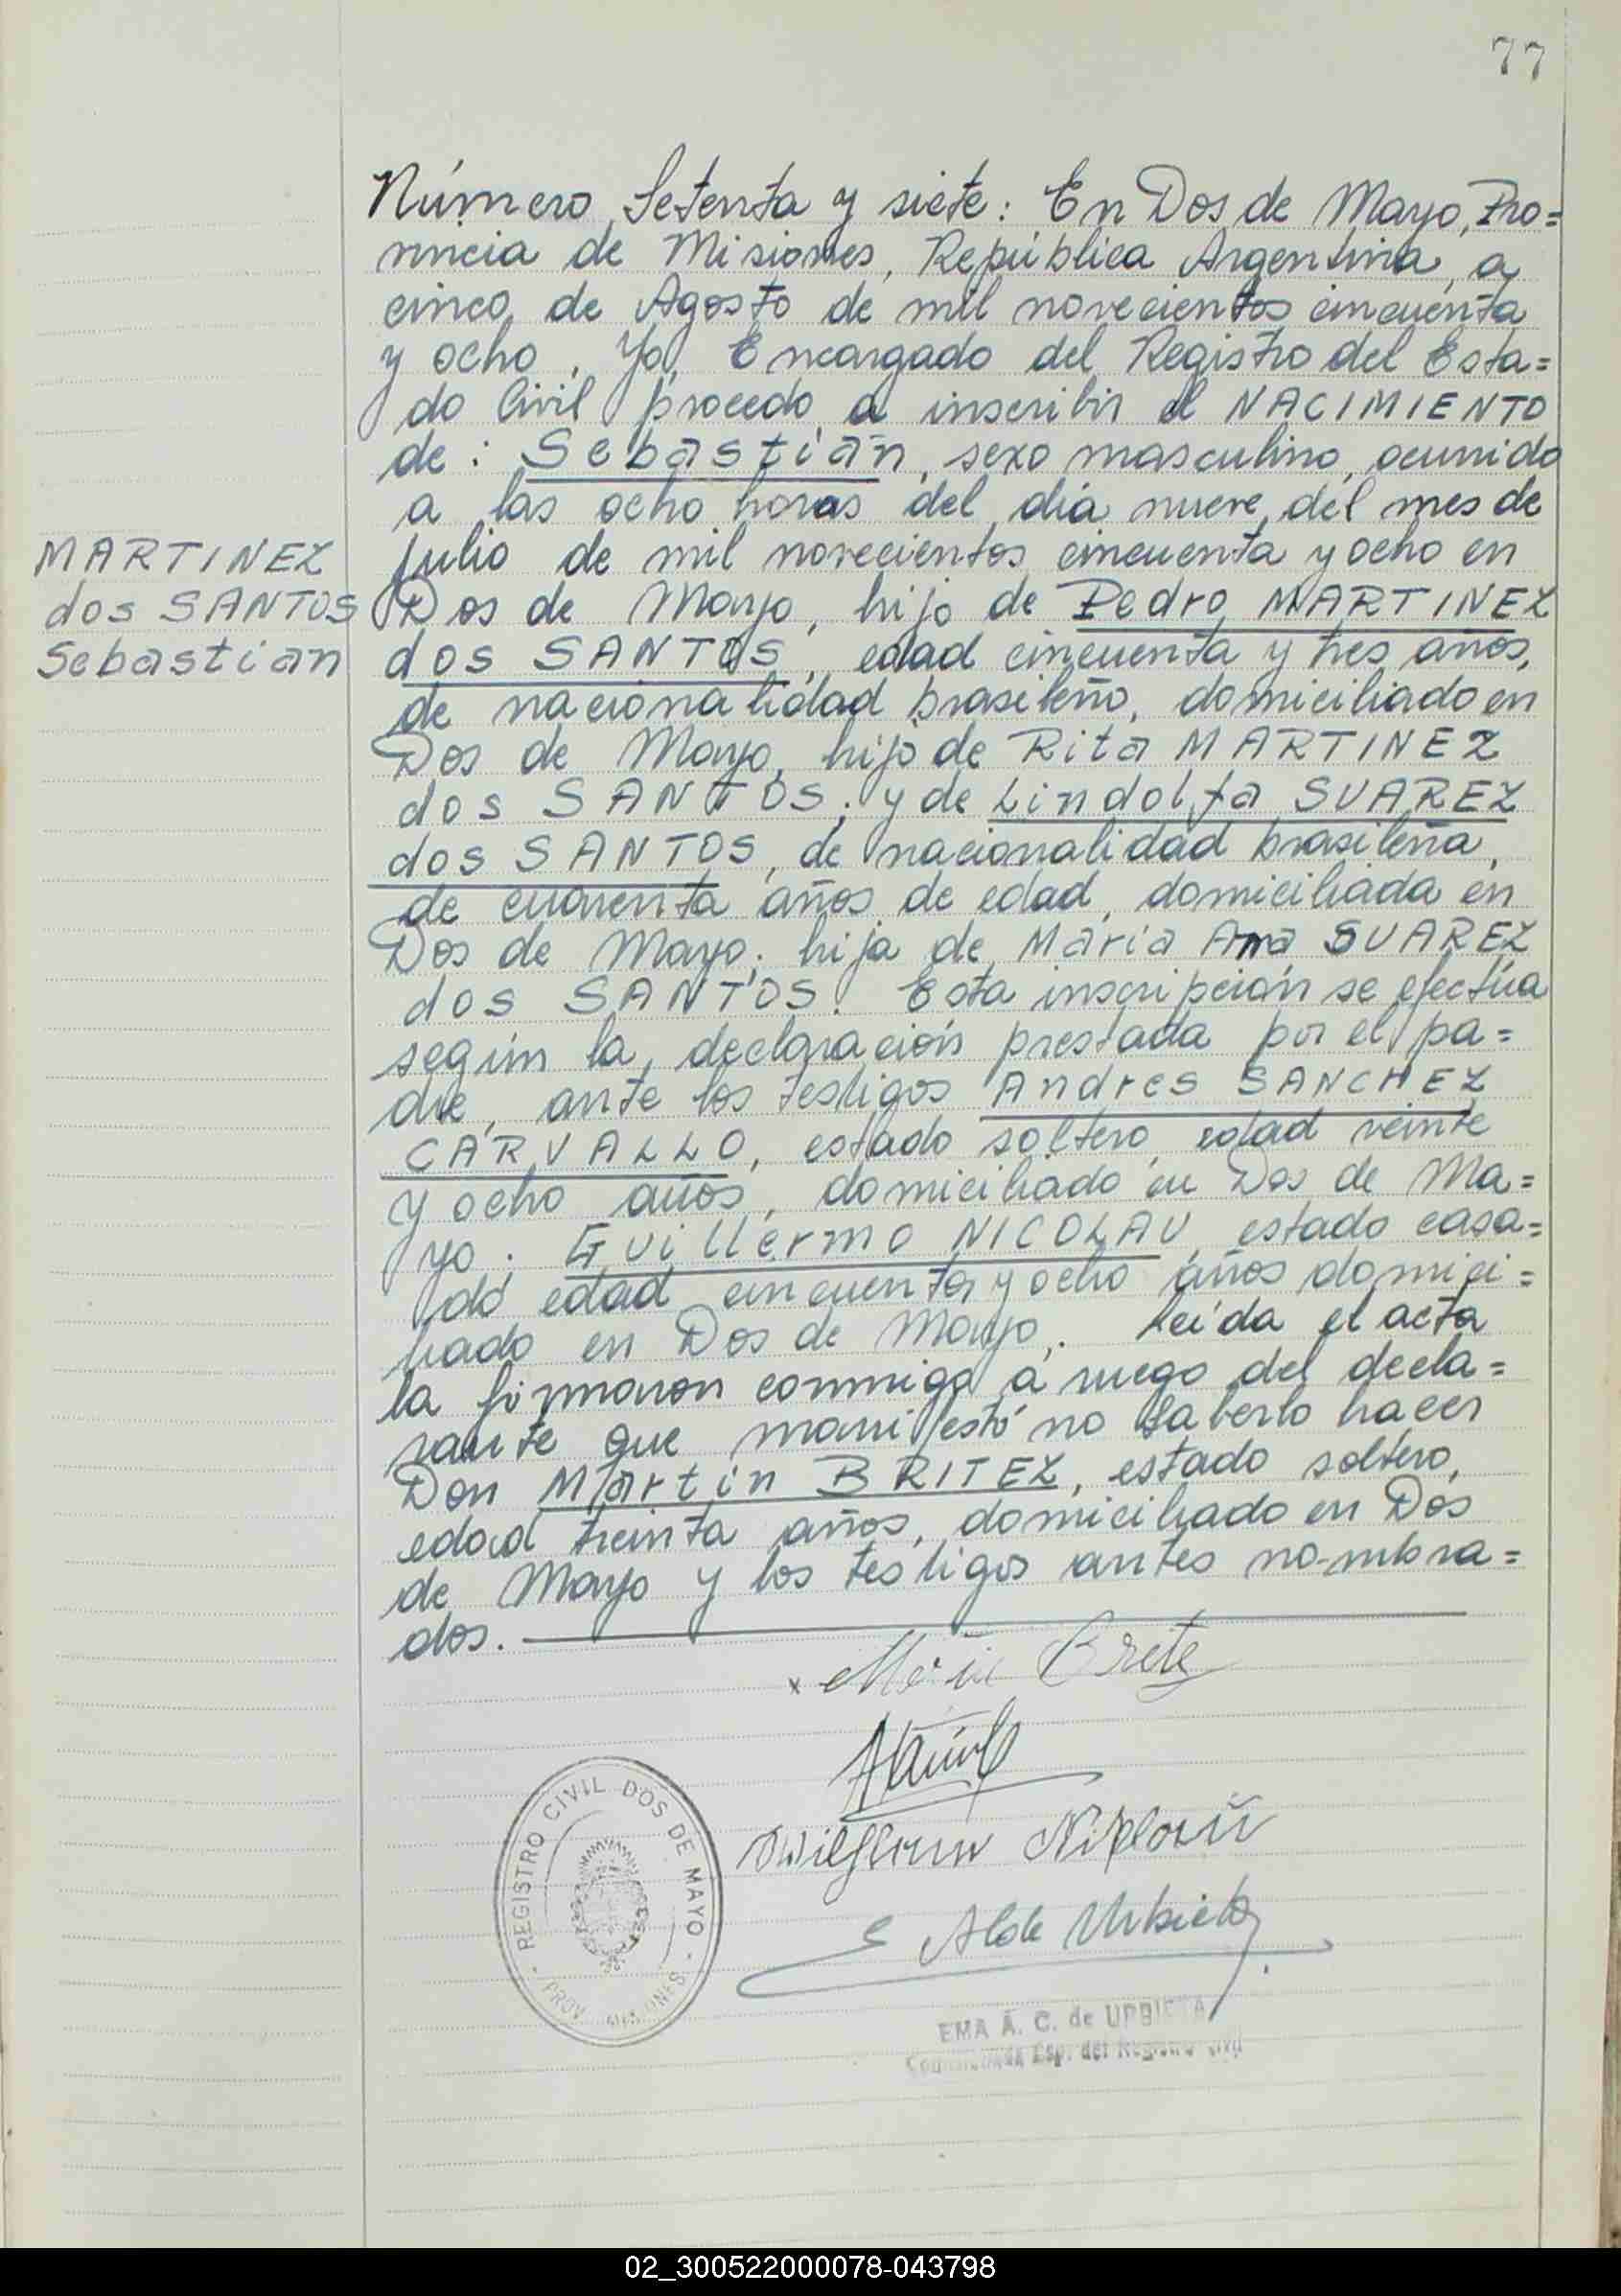 77
Número Setenta y siete: En Dos de Mayo, Pro=
vincia de Misiones, República Argentina, a
cinco de Agosto de mil novecientos cincuenta
y ocho, Yo, Encargado del Registro del Esta=
do Civil procedo a inscribir el NACIMIENTO
de: Sebastian, sexo masculino, ocurrido
a las ocho horas del día nueve del mes de
MARTINEZ
dos SANTOS
Sebastian
julio de mil novecientos cincuenta y ocho en
Dos de Mayo, hijo de Pedro MARTINEZ
dos SANTOS, edad cincuenta y tres años,
de nacionalidad brasileño, domiciliado en
Dos de Mayo, hijo de Rita MARTINEZ
dos SANTOS; y de Lindolfa SUAREZ
dos SANTOS, de nacionalidad brasileña,
de cuarenta años de edad, domiciliada en
Dos de Mayo; hija de Maria Ana SUAREZ
dos SANTOS. Esta inscripción se efectúa
según la declaración prestada por el pa=
dre, ante los testigos Andres SANCHEZ
CARVALLO, estado soltero, edad veinte
y ocho años, domiciliado en Dos de Ma=
yo. Guillermo NICOLAU, estado casa=
do edad cincuenta y ocho años domici=
liado en Dos de Mayo. Leída el acta
la firmaron conmigo a ruego del decla=
rante que manifestó no saberlo hacer
Don Martin BRITEZ, estado soltero,
edad treinta años, domiciliado en Dos
de Mayo y los testigos antes nombra=
dos.
x Brete
E Alde Urbieta
REGISTRO CIVIL DOS DE MAYO
PROV. MISIONES
EMA A. C. de URBIETA
Esp. del Registro Civil
02_300522000078-043798